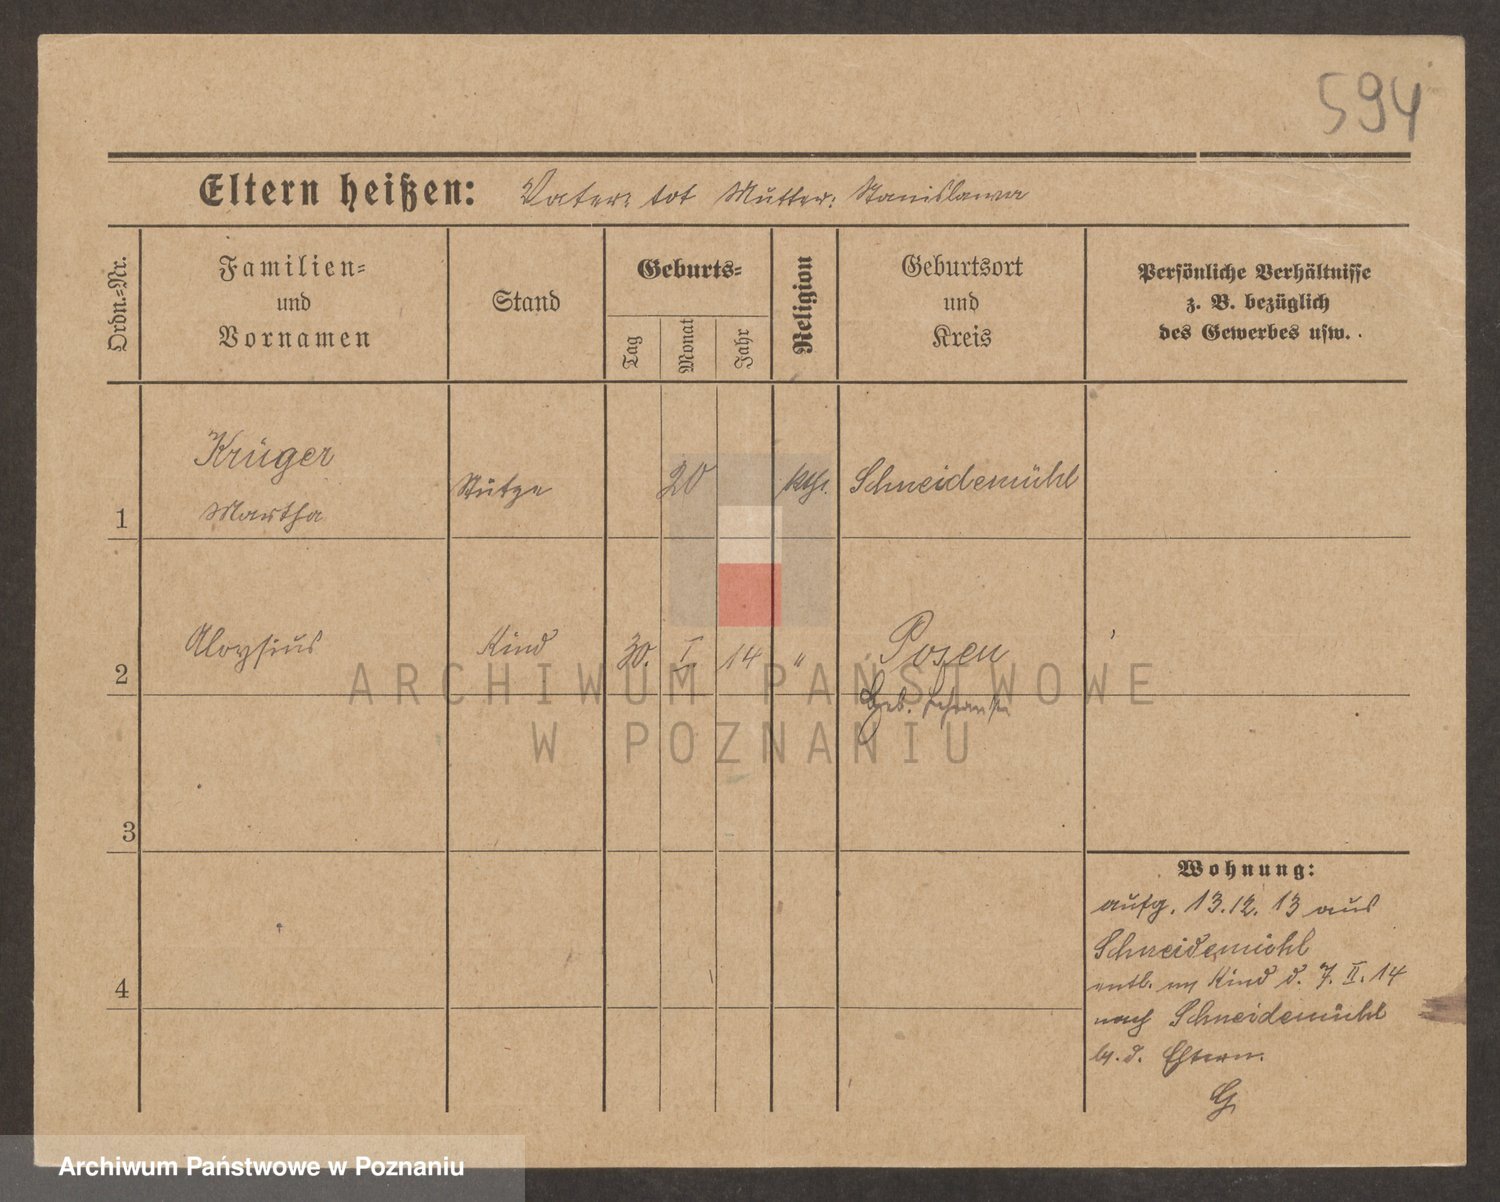 594
Eltern heißen: Vater: tot Mutter: Stanislawa
Ordn.=Nr.
Familien=
und
Vornamen
Stand
Geburts=
Tag
Monat
Jahr
Religion
Geburtsort
und
Kreis
Persönliche Verhältnisse
z. B. bezüglich
des Gewerbes usw.
1
Krüger
Martha
Stütze
20
kth.
Schneidemühl
2
Aloysius
Kind
30.
I.
14
"
Posen
Geb.
3
4
Wohnung:
aufg. 13.12.13 aus
Schneidemühl
entl. m Kind d. 7.II.14
nach Schneidemühl
b. d. Eltern.
G
ARCHIWUM PAŃSTWOWE
W POZNANIU
Archiwum Państwowe w Poznaniu